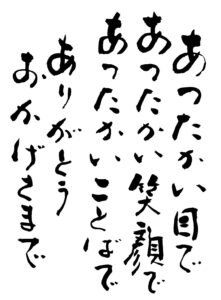 あつたかい目で
あつたかい笑顔で
あつたかいことばで
ありがとう
おかげさまで